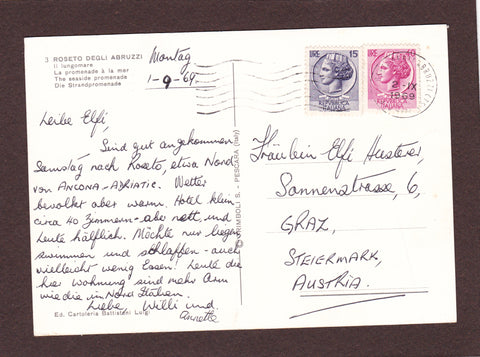 3 ROSETO DEGLI ABRUZZI
Il lungomare
La promenade à la mer
The seaside promenade
Die Strandpromenade
Montag
1-9-69
Leibe Elfi,
Sind gut angekommen
Samstag nach Roseto, etwa Nord
von ANCONA-ADRIATIC. Wetter
bevolkt aber warm. Hotel klein
circa 40 Zimmern - aber nett, und
Leute hälflich. Möchte nur liegen
swimmen und schlaffen - auch
vielleicht wenig Essen! Leute die
hier Wohnung sind mehr Arm
wie die in Nord Italien.
Liebe, Willi und
Annette
Ed. Cartoleria Battistoni Luigi
© TRIMBOLI S. - PESCARA (Italy)
LIRE 15
LIRE 40
2-IX
1969
Fräulein Elfi
Sonnenstrasse, 6,
GRAZ,
STEIERMARK,
AUSTRIA.